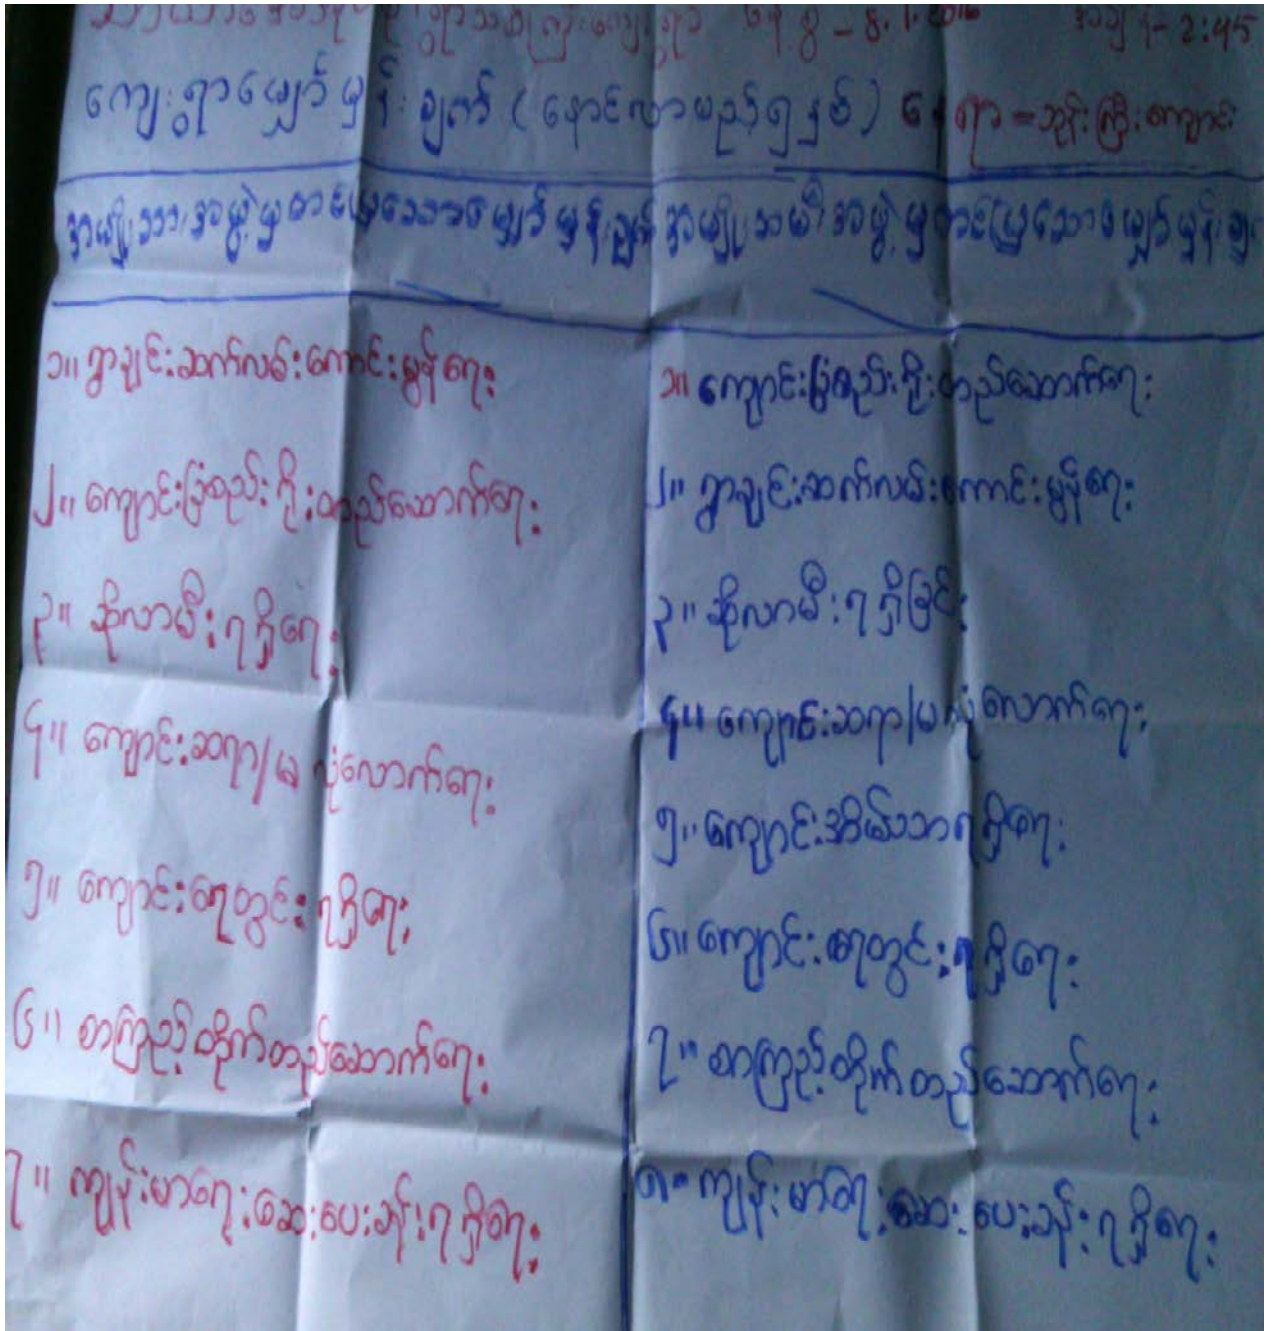 ရွာသစ်ကြီးကျေးရွာ နေ့စွဲ - 8.1.2016 အချိန် - 2:45
ကျေးရွာမျှော်မှန်းချက် (နောင်လာမည့်၅နှစ်) နေရာ = ဘုန်းကြီးကျောင်း
အမျိုးသားအဖွဲ့မှတင်ပြသောမျှော်မှန်းချက်
၁။ ရွာချင်းဆက်လမ်းကောင်းမွန်ရေး
၂။ ကျောင်းခြံစည်းရိုးတည်ဆောက်ရေး
၃။ ဆိုလာမီးရရှိရေး
၄။ ကျောင်းဆရာ/မ လုံလောက်ရေး
၅။ ကျောင်းရေတွင်းရရှိရေး
၆။ စာကြည့်တိုက်တည်ဆောက်ရေး
၇။ ကျန်းမာရေးဆေးပေးခန်းရရှိရေး
အမျိုးသမီးအဖွဲ့မှတင်ပြသောမျှော်မှန်းချ
၁။ ကျောင်းခြံစည်းရိုးတည်ဆောက်ရေး
၂။ ရွာချင်းဆက်လမ်းကောင်းမွန်ရေး
၃။ ဆိုလာမီးရရှိခြင်း
၄။ ကျောင်းဆရာ/မ လုံလောက်ရေး
၅။ ကျောင်းအိမ်သာရရှိရေး
၆။ ကျောင်းရေတွင်းရရှိရေး
၇။ စာကြည့်တိုက်တည်ဆောက်ရေး
၈။ ကျန်းမာရေးဆေးပေးခန်းရရှိရေး